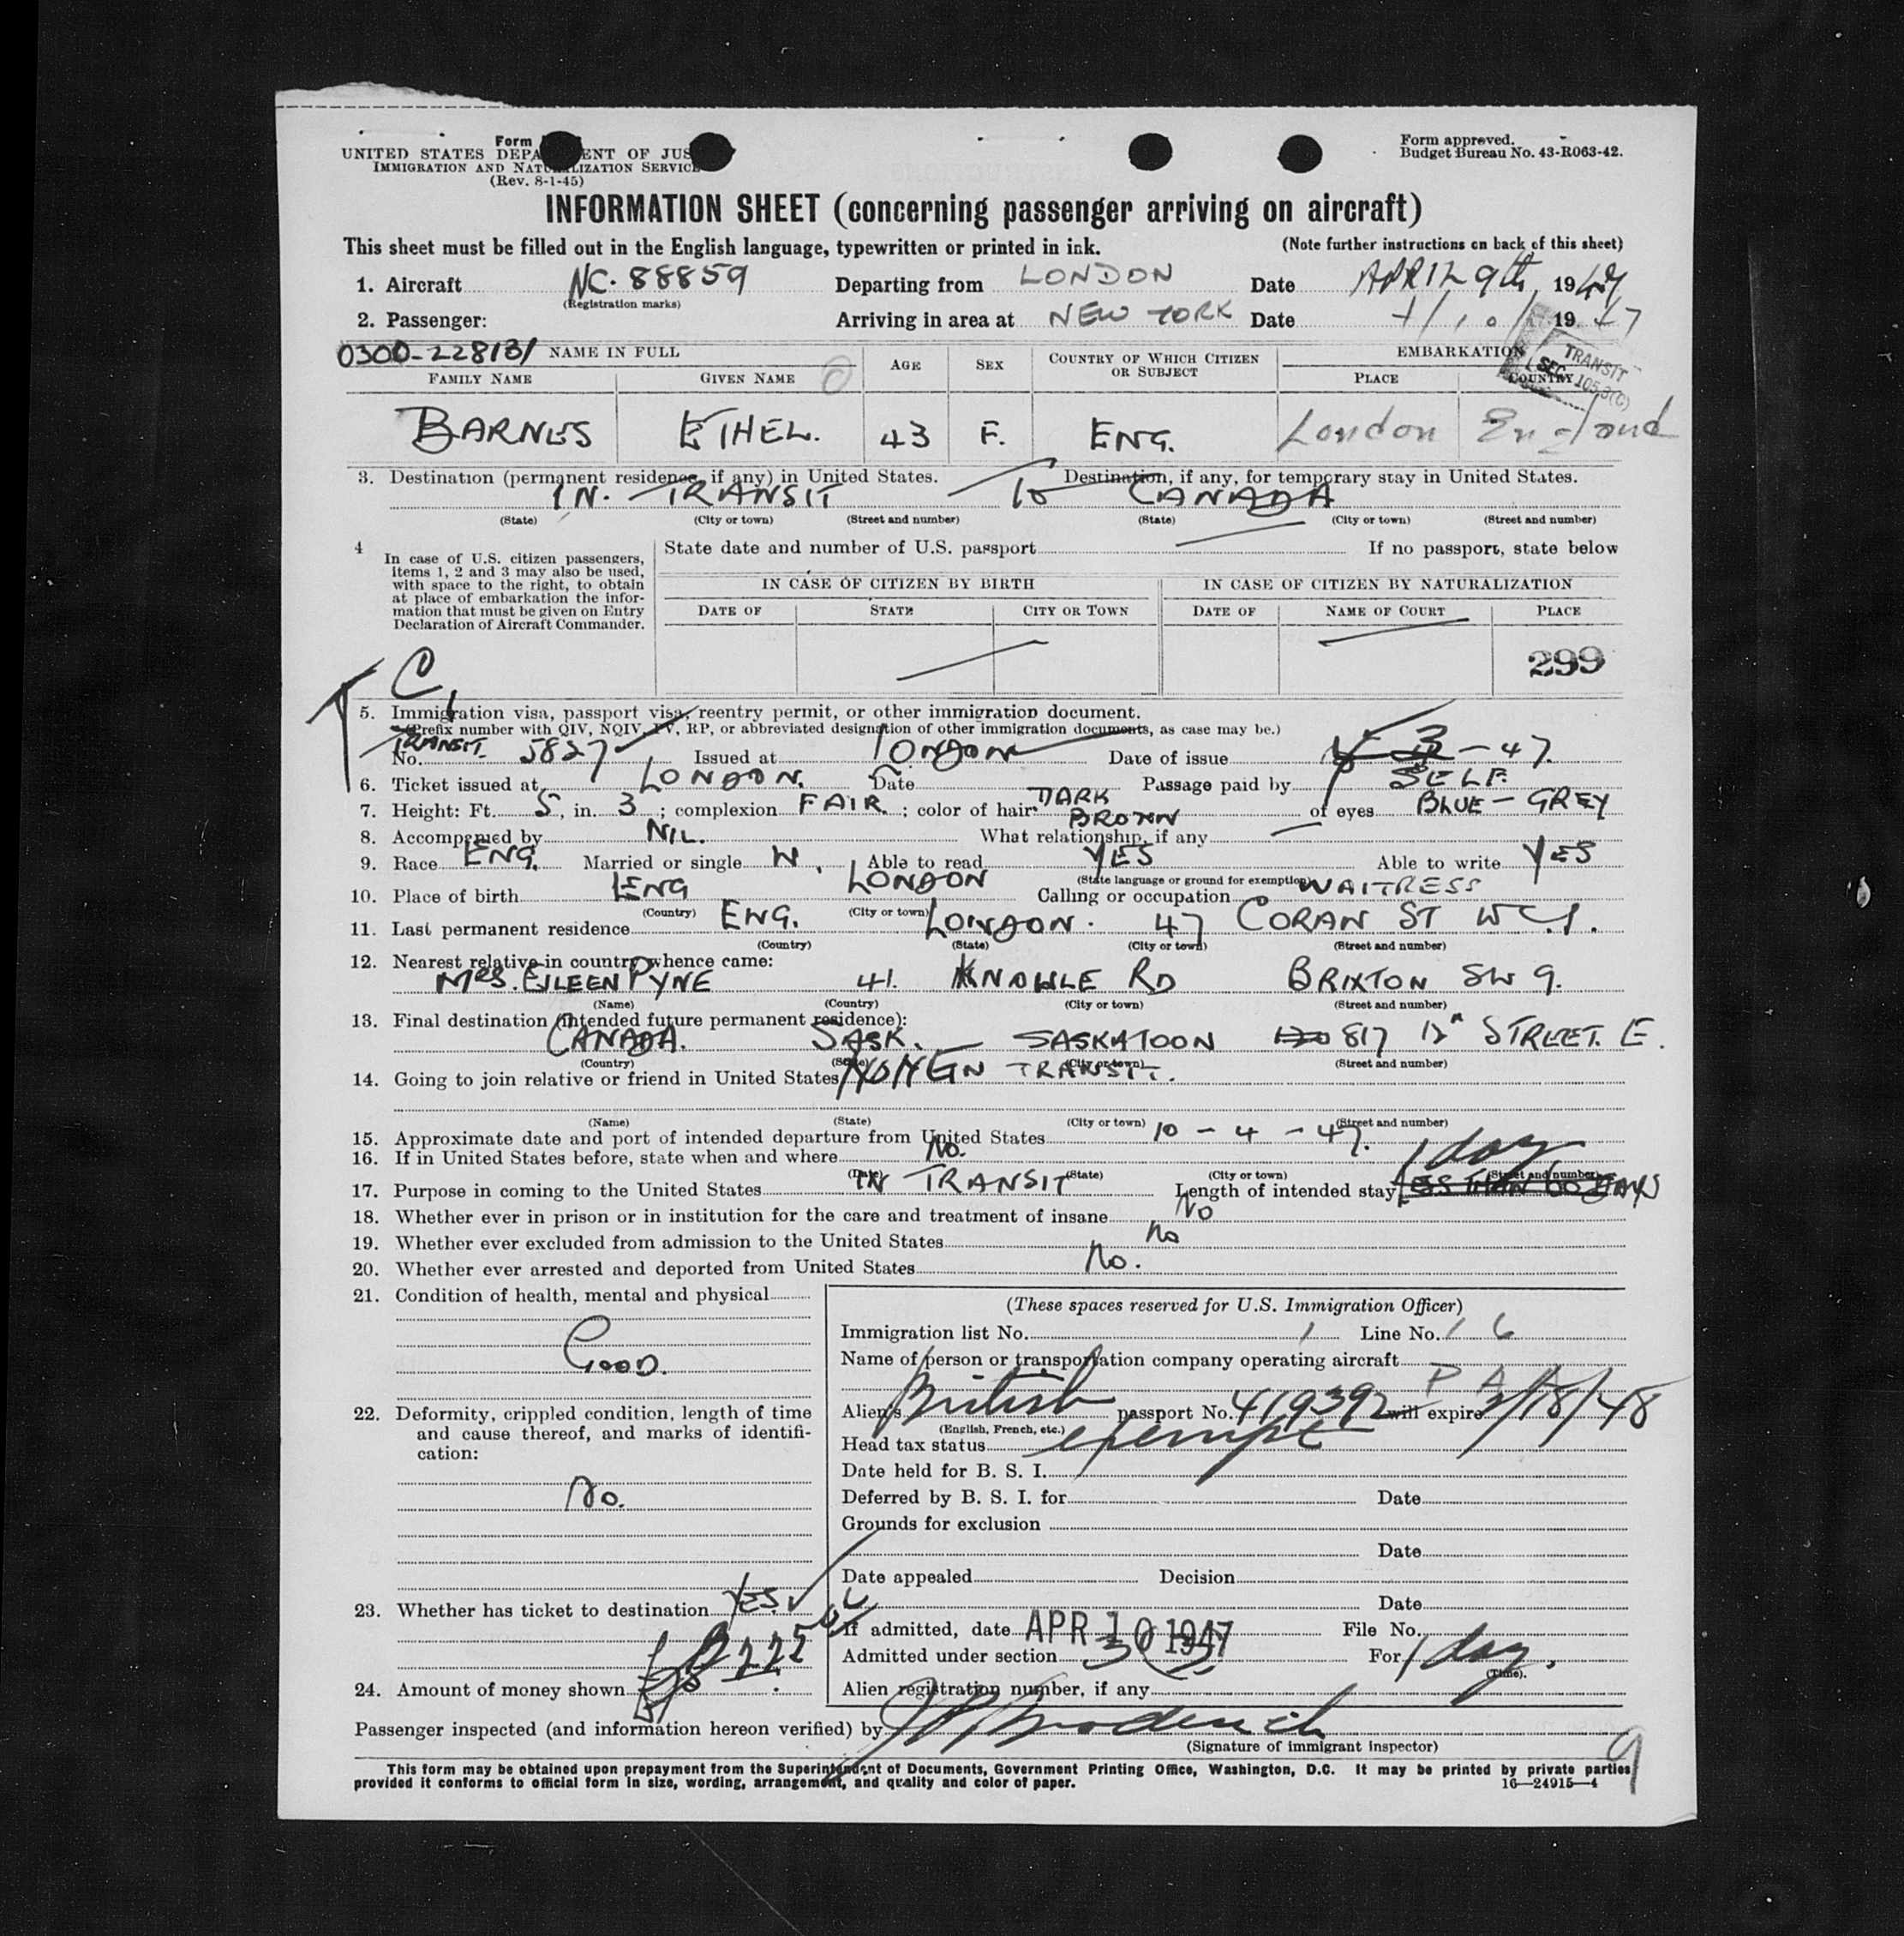 Form
UNITED STATES DEPA ENT OF JUS
IMMIGRATION AND NATURALIZATION SERVICE
(Rev. 8-1-45)
Form approved.
Budget Bureau No. 43-R063-42.
INFORMATION SHEET (concerning passenger arriving on aircraft)
This sheet must be filled out in the English language, typewritten or printed in ink. (Note further instructions on back of this sheet)
1. Aircraft NC. 88859 Departing from LONDON Date APRIL 9th, 1947
(Registration marks)
2. Passenger: Arriving in area at NEW YORK Date 19 47
TRANSIT
SEC. 105.3(C)
0300-228131 NAME IN FULL AGE SEX COUNTRY OF WHICH CITIZEN OR SUBJECT EMBARKATION
FAMILY NAME GIVEN NAME PLACE COUNTRY
BARNES ETHEL. 43 F. ENG. London England
3. Destination (permanent residence, if any) in United States. Destination, if any, for temporary stay in United States.
IN. TRANSIT To CANADA
(State) (City or town) (Street and number) (State) (City or town) (Street and number)
4 In case of U.S. citizen passengers,
items 1, 2 and 3 may also be used,
with space to the right, to obtain
at place of embarkation the infor-
mation that must be given on Entry
Declaration of Aircraft Commander.
State date and number of U.S. passport If no passport, state below
IN CASE OF CITIZEN BY BIRTH IN CASE OF CITIZEN BY NATURALIZATION
DATE OF STATE CITY OR TOWN DATE OF NAME OF COURT PLACE
299
C
5. Immigration visa, passport visa, reentry permit, or other immigration document.
(Prefix number with QIV, NQIV, PV, RP, or abbreviated designation of other immigration documents, as case may be.)
TRANSIT.
No. 5827 Issued at LONDON Date of issue 3 - 47.
6. Ticket issued at LONDON. Date Passage paid by SELF.
7. Height: Ft. 5, in. 3; complexion FAIR.; color of hair DARK BROWN of eyes BLUE-GREY
8. Accompanied by NIL. What relationship, if any
9. Race ENG. Married or single W. Able to read YES Able to write YES
(State language or ground for exemption)
10. Place of birth ENG LONDON Calling or occupation WAITRESS
(Country) (City or town)
11. Last permanent residence ENG. LONDON. 47 CORAN ST W.C.1.
(Country) (State) (City or town) (Street and number)
12. Nearest relative in country whence came:
MRS. EILEEN PYNE 41. KNOWLE RD BRIXTON SW 9.
(Name) (Country) (City or town) (Street and number)
13. Final destination (intended future permanent residence):
CANADA. SASK. SASKATOON 817 12th STREET. E.
(Country) (State) (City or town) (Street and number)
14. Going to join relative or friend in United States IN TRANSIT.
(Name) (State) (City or town) (Street and number)
15. Approximate date and port of intended departure from United States 10 - 4 - 47.
16. If in United States before, state when and where No.
(Date) (State) (City or town) (Street and number)
17. Purpose in coming to the United States IN TRANSIT Length of intended stay LESS THAN 60 DAYS 1 day
18. Whether ever in prison or in institution for the care and treatment of insane No
19. Whether ever excluded from admission to the United States No
20. Whether ever arrested and deported from United States No.
21. Condition of health, mental and physical
GOOD.
22. Deformity, crippled condition, length of time
and cause thereof, and marks of identifi-
cation:
No.
23. Whether has ticket to destination YES
24. Amount of money shown
(These spaces reserved for U.S. Immigration Officer)
Immigration list No. 1 Line No. 6
Name of person or transportation company operating aircraft
P A A
Alien's British passport No. 419392 will expire 3/18/48
(English, French, etc.)
Head tax status exempt
Date held for B. S. I.
Deferred by B. S. I. for Date
Grounds for exclusion
Date
Date appealed Decision
Date
If admitted, date APR 10 1947 File No.
Admitted under section 3(3) For 1 day.
(Time).
Alien registration number, if any
Passenger inspected (and information hereon verified) by
(Signature of immigrant inspector)
9
This form may be obtained upon prepayment from the Superintendent of Documents, Government Printing Office, Washington, D.C. It may be printed by private parties
provided it conforms to official form in size, wording, arrangement, and quality and color of paper. 16—24915—4